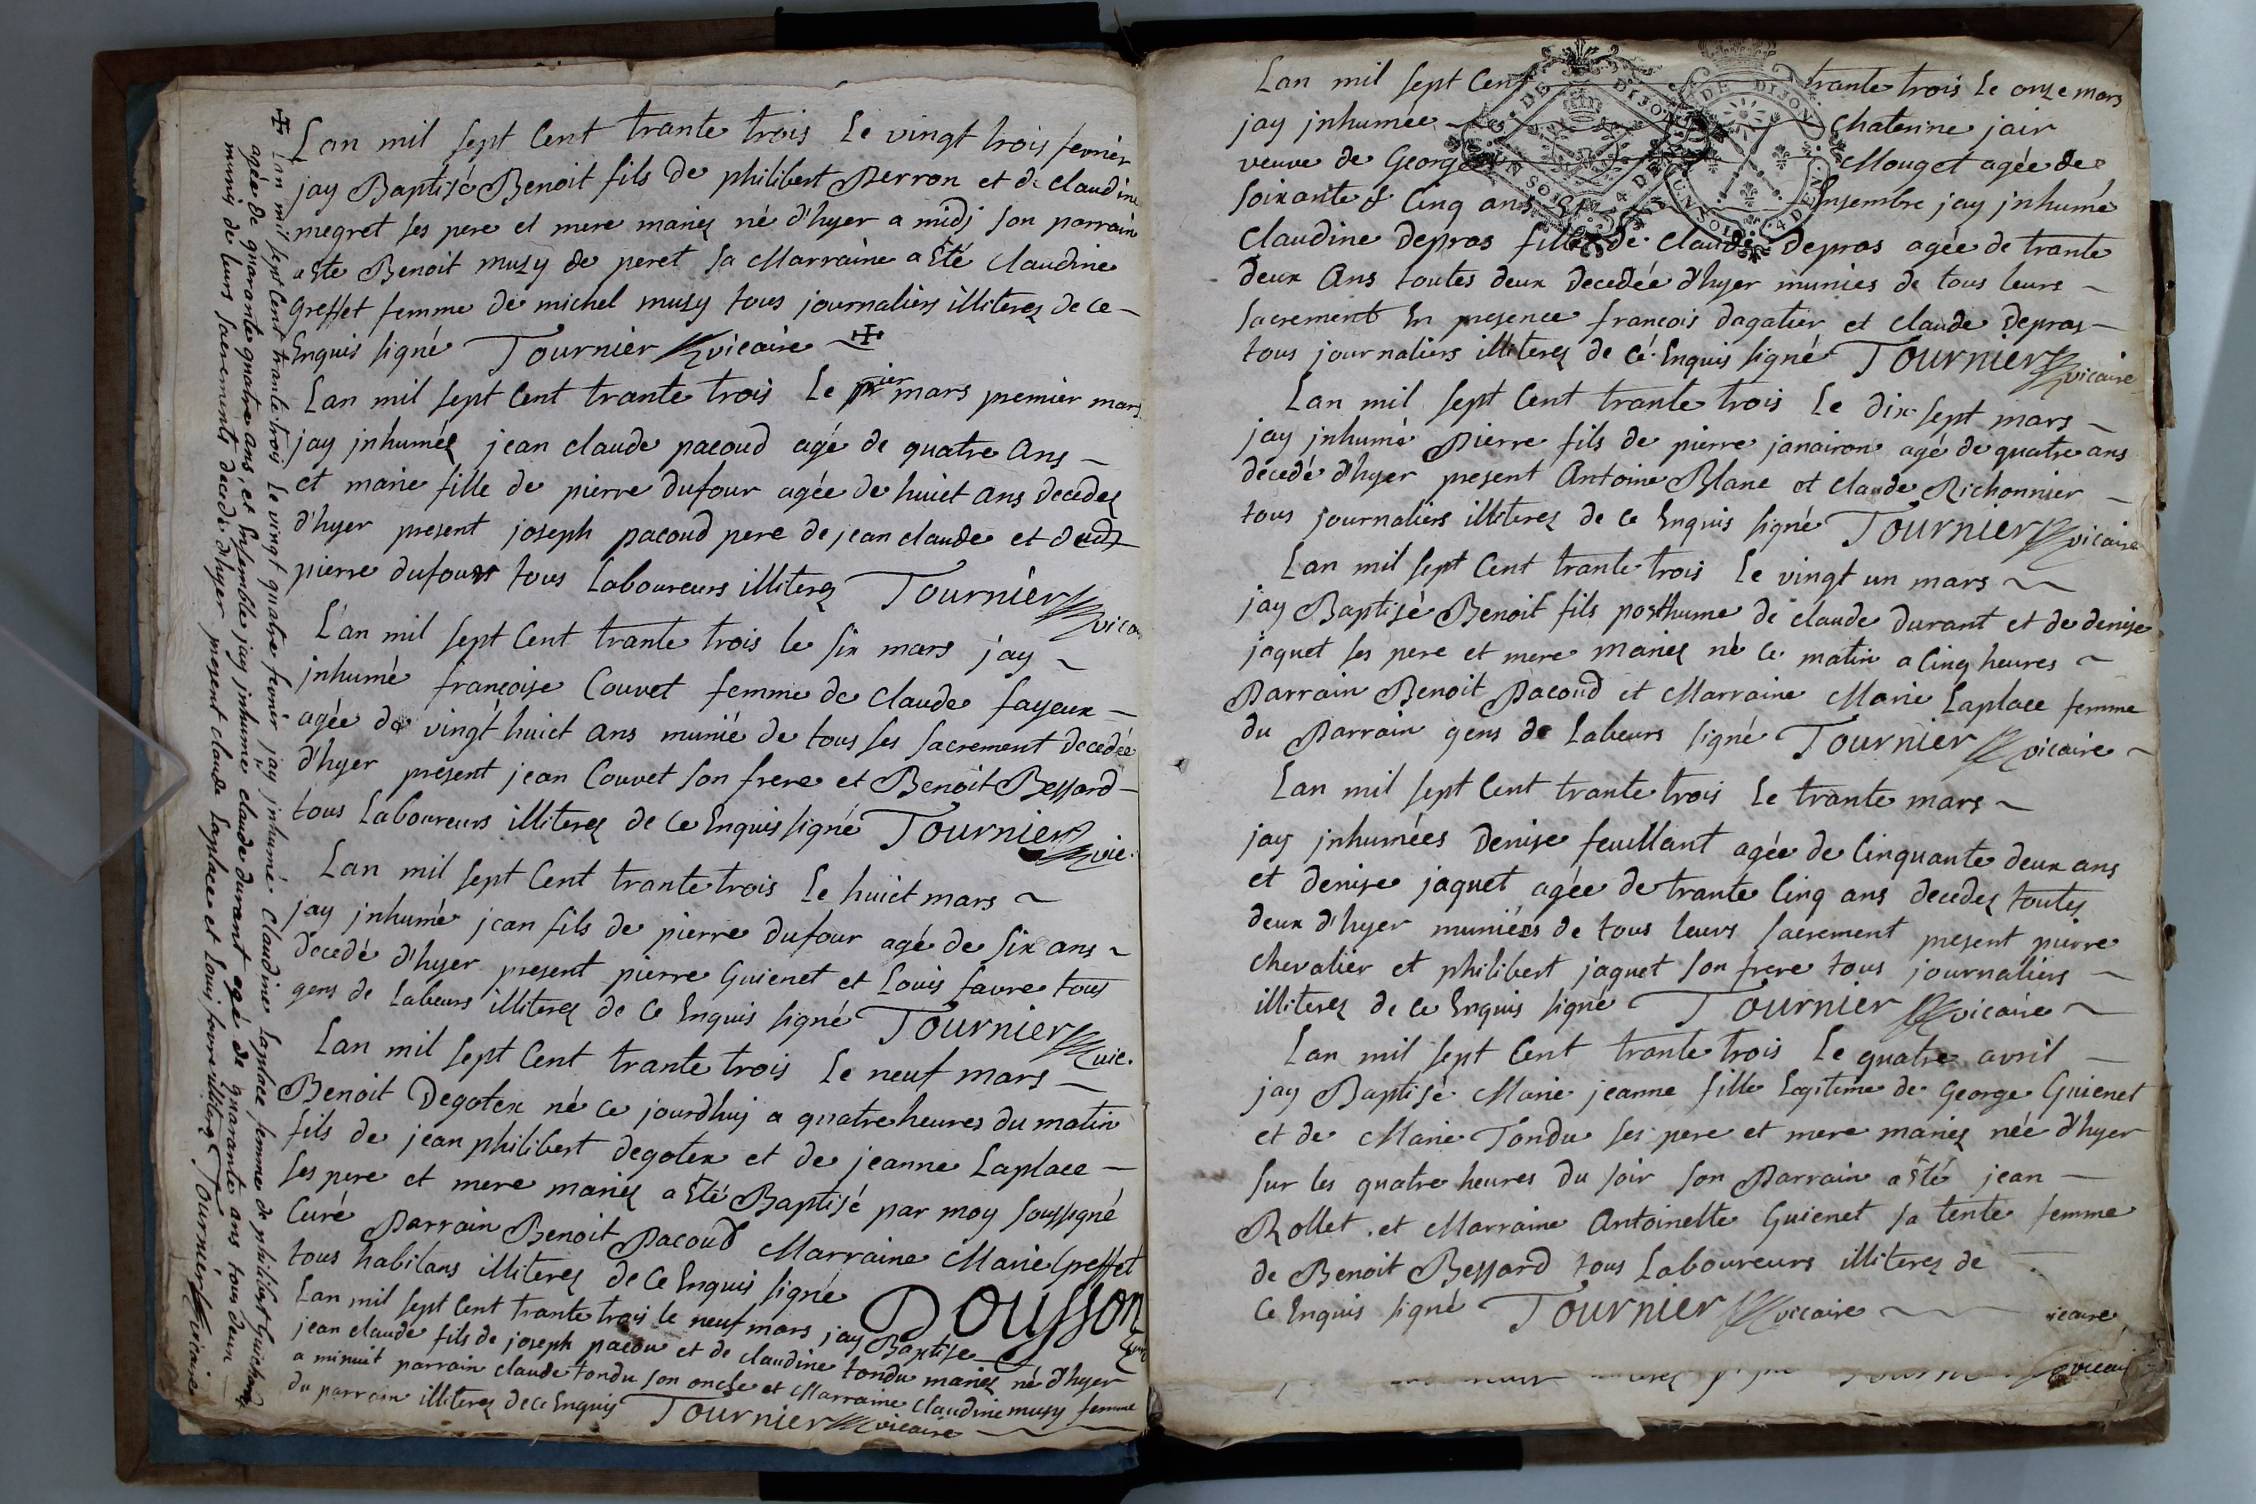 Lan mil sept Cent trante trois Le vingt trois fevrier
jay Baptisé Benoit fils de philibert Perron et de claudine
megret ses pere et mere mariez né d'hyer a midj son parrain
a Esté Benoit muzy de peret sa Marraine a Esté Claudine
Greffet femme de michel muzy tous journaliers illiterez de ce
Enquis signé Tournier vicaire ✠
Lan mil sept Cent trante trois Le pr ier mars premier mars
jay jnhuméz jean claude pacoud agé de quatre Ans
et marie fille de pierre dufour agée de huict ans decedez
d'hyer present joseph pacoud pere de jean claude et dudt
pierre dufour tous Laboureurs illiterez Tournier vica
L'an mil sept Cent trante trois le six mars jay
jnhumé françoise Couvet femme de Claude fayeux
agée de vingt huict ans munie de tous ses sacrement decedée
d'hyer present jean Couvet son frere et Benoit Bessard
tous Laboureurs illiterez de Ce Enquis signé Tournier vic.
Lan mil sept Cent trante trois Le huict mars
jay jnhumé jean fils de pierre dufour agé de six ans
decedé d'hyer present pierre Guienet et Louis favre tous
gens de Labeurs illiterez de Ce Enquis signé Tournier vic.
Lan mil sept Cent trante trois Le neuf mars
Benoit Degotex né ce jourdhuj a quatre heures du matin
fils de jean philibert degotex et de jeanne Laplace
ses pere et mere mariez a Esté Baptisé par moy soussigné
Curé Parrain Benoit Pacoud Marraine Marie Greffet
tous habitans illiterez de Ce Enquis signé Dousson
Lan mil sept Cent trante trois le neuf mars jay Baptise
jean claude fils de joseph pacou et de claudine tondu mariez né d'hyer
a minuit parrain claude tondu son oncle et Marraine Claudine muzy femme
du parrain illiterez de Ce Enquis Tournier vicaire
✠ Lan mil sept Cent trante trois Le vingt quatre fevrier jay jnhumé Claudine Laplace femme de philibert Guichard
agée de quarante quatre ans, et Ensemble jay jnhumé claude durant agé de quarante ans tous deux
munis de leurs sacrements decedé d'hyer present claude Laplace et Louis favre illiterez Tournier vicaire
Lan mil sept Cent trante trois Le onze mars
jay jnhumée Chaterine jair
veuve de George Mouget agée de
soixante & Cinq ans Ensembre jay jnhumé
Claudine Depras fille de Claude Depras agée de trante
deux Ans toutes deux decedée d'hyer munies de tous leurs
sacrement En presence françois dagalier et claude Depras
tous journaliers illiterez de Cé Enquis signé Tournier vicaire
Lan mil sept Cent trante trois Le dix sept mars
jay jnhumé Pierre fils de pierre janairon agé de quatre ans
decedé d'hyer present Antoine Blanc et Claude Richonnier
tous journaliers illiterez de Ce Enquis signé Tournier vicaire
Lan mil sept Cent trante trois Le vingt un mars
jay Baptisé Benoit fils posthume de claude durant et de denise
jaquet ses pere et mere mariez né Ce matin a Cinq heures
Parrain Benoit Pacoud et Marraine Marie Laplace femme
du Parrain gens de Labeurs signé Tournier vicaire
Lan mil sept Cent trante trois Le trante mars
jay jnhumées Denise feuillant agée de Cinquante deux ans
et denise jaquet agée de trante Cinq ans decedez toutes
deux d'hyer muniées de tous leurs sacrement present pierre
chevalier et philibert jaquet son frere tous journaliers
illiterez de Ce Enquis signé Tournier vicaire
Lan mil sept Cent trante trois Le quatre avril
jay Baptisé Marie jeanne fille Legitime de George Guienet
et de Marie Tondu ses pere et mere mariez née d'hyer
sur les quatre heures du soir son Parrain a Esté jean
Rollet. et Marraine Antoinette Guienet sa tente femme
de Benoit Bessard tous Laboureurs illiterez de
Ce Enquis signé Tournier vicaire
icaire
vicai